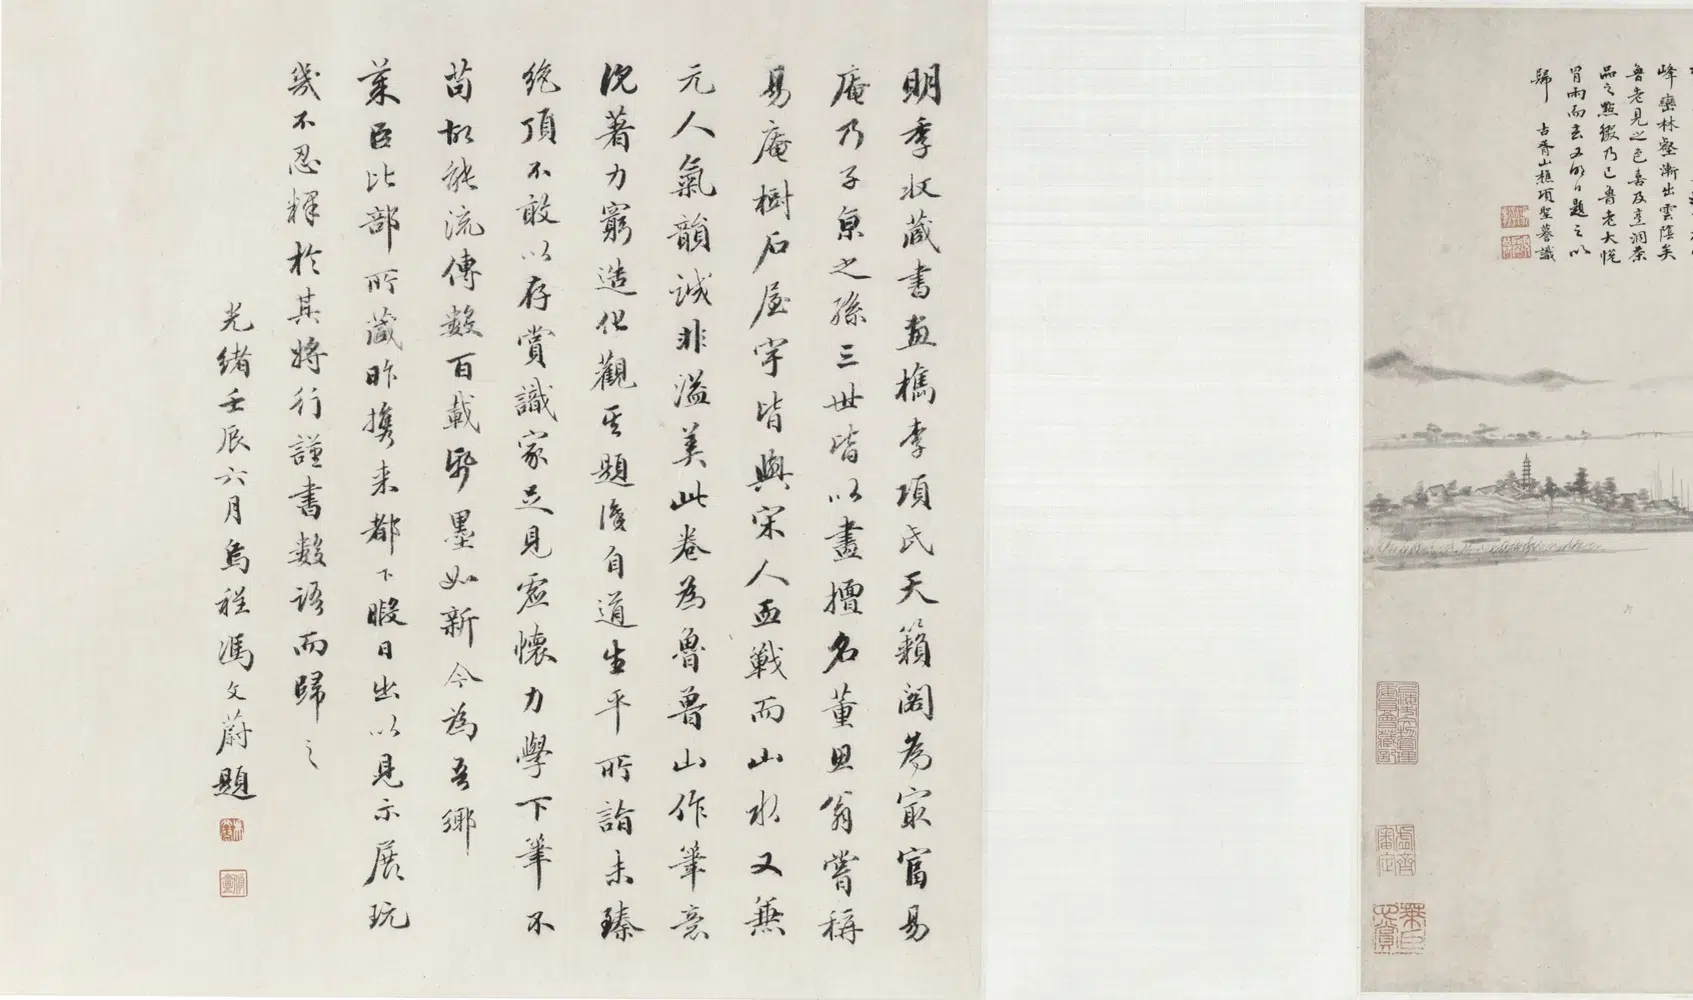 峰巒林壑漸出雲蔭矣
魯老見之色喜及烹洞茶
品之點綴乃已魯老大悅
冒雨而去又明日題之以
歸 古胥山樵項聖謩識
虛齋審定
萊臣心賞
明季收藏書畫檇李項氏天籟閣為冣富易
庵乃子京之孫三世皆以畫擅名董思翁嘗稱
易庵樹石屋宇皆與宋人血戰而山水又兼
元人氣韻誠非溢美此卷為魯魯山作筆意
沈著力窮造化觀其題後自道生平所詣未臻
絶頂不敢以存賞識家足見虛懷力學下筆不
苟故能流傳數百載紙墨如新今為吾鄉
萊臣比部所藏昨攜来都下暇日出以見示展玩
幾不忍釋於其將行謹書數語而歸之
光緒壬辰六月烏程馮文蔚題